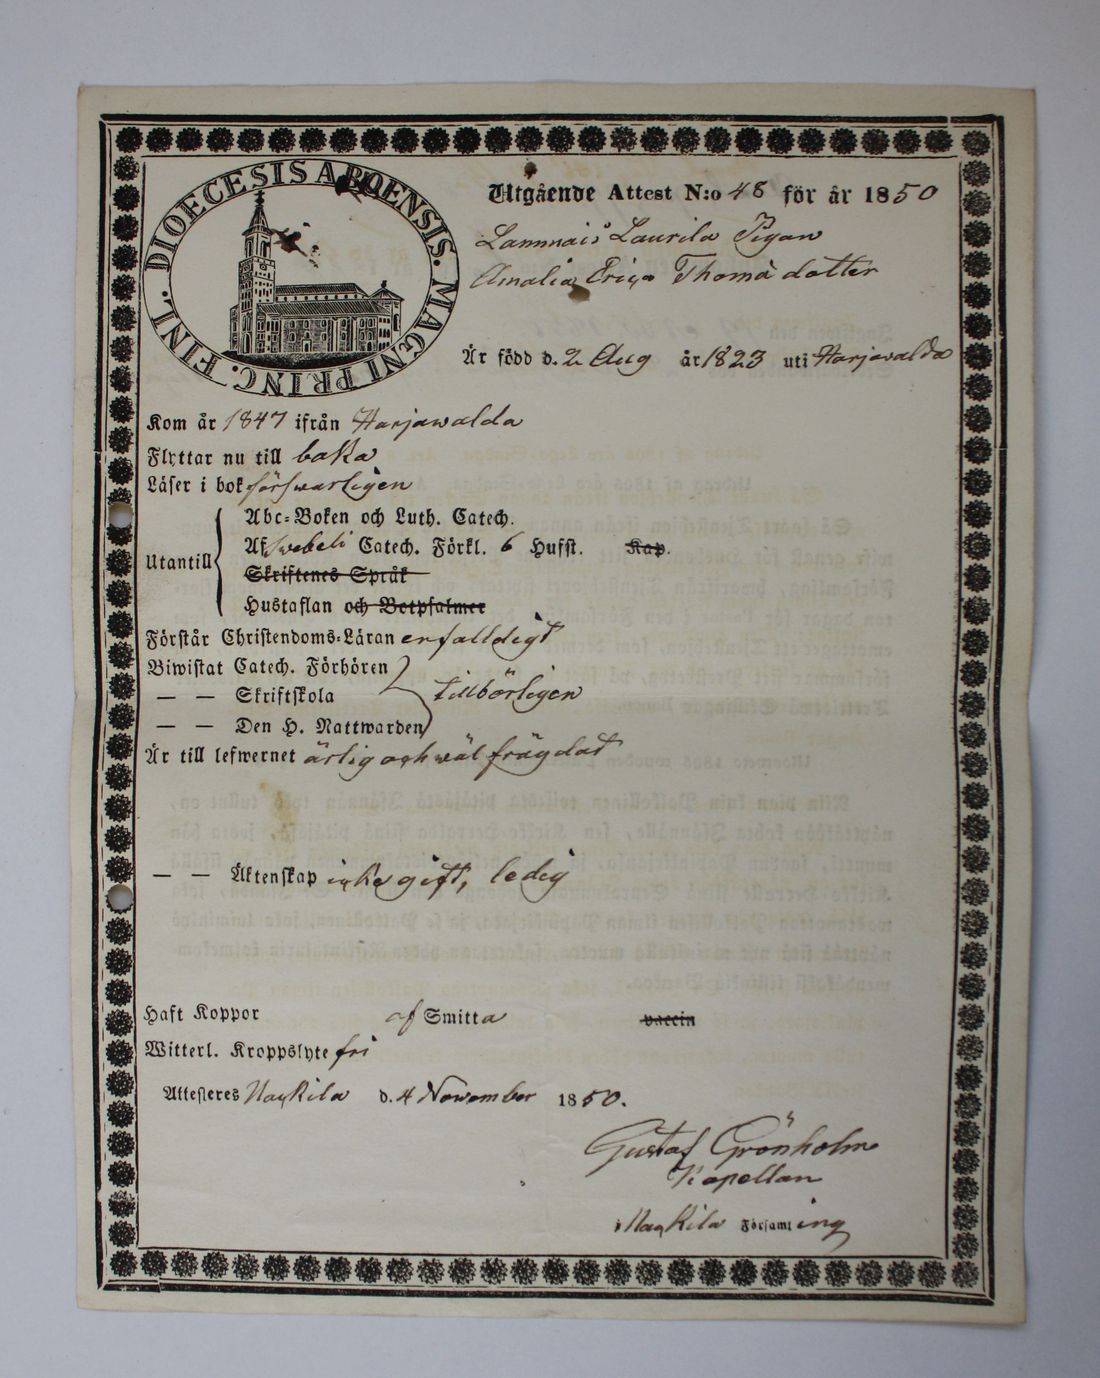 DIOECESIS ABOENSIS. MAGNI PRINC. FINL.
Utgående Attest N:o 48 för år 1850
Lammais Laurila Pigan
Amalia Erica Thomä dotter
Är född d. 2 Aug år 1823 uti Harjavalda
Kom år 1847 ifrån Harjawalda
Flyttar nu till baka
Läser i bok förswarligen
Utantill
Abc-Boken och Luth. Catech.
Af Swebeli Catech. Förkl. 6 Hufst. Kap.
Skriftenes Språk
Hustaflan och Botpsalmer
Förstår Christendoms-Läran enfalldigt
Biwistat Catech. Förhören
— — Skriftskola tillbörligen
— — Den H. Nattwarden
Är till lefwernet ärlig och wäl frägdat
— — Äktenskap icke gift, ledig
Haft Koppor af Smitta vaccin
Witterl. Kroppslyte fri
Attesteres Nackila d. 4 November 1850.
Gustaf Grönholm
Kapellan
i Nackila Församling